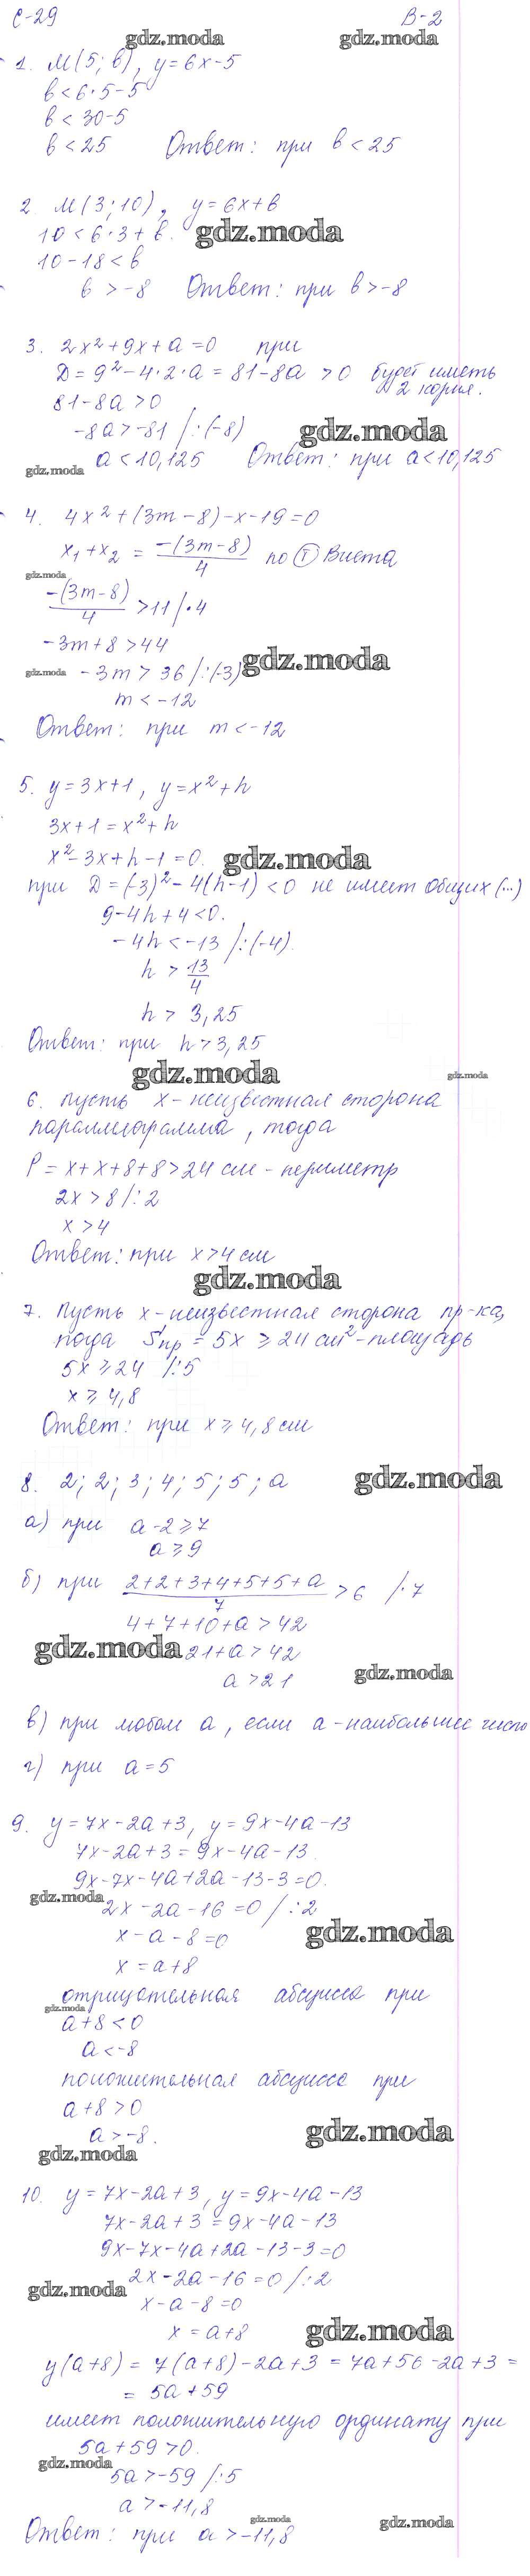 С-29 В-2
gdz.moda gdz.moda
1. М(5; в), y=6x-5
в<6·5-5
в<30-5
в<25 Ответ: при в<25
2. М(3;10), y=6x+в
10<6·3+в. gdz.moda
10-18<в
в>-8 Ответ: при в>-8
3. 2x²+9x+a=0 при
D=9²-4·2·a=81-8a>0 будет иметь
2 корня.
81-8a>0
-8a>-81 /:(-8) gdz.moda
gdz.moda a<10,125 Ответ: при a<10,125
4. 4x²+(3m-8)-x-19=0
x₁+x₂ = -(3m-8)/4 по Т Виета
gdz.moda
-(3m-8)/4 >11 /·4
-3m+8>44
gdz.moda -3m>36 /:(-3) gdz.moda
m<-12
Ответ: при m<-12
5. y=3x+1, y=x²+h
3x+1=x²+h
x²-3x+h-1=0. gdz.moda
при D=(-3)²-4(h-1)<0 не имеет общих (...)
9-4h+4<0.
-4h<-13 /:(-4).
h > 13/4
h > 3,25
Ответ: при h>3,25
gdz.moda gdz.moda
6. Пусть x-неизвестная сторона
параллелограмма, тогда
P=x+x+8+8>24 см - периметр
2x>8 /:2
x>4
Ответ: при x>4 см
gdz.moda
7. Пусть x-неизвестная сторона пр-ка,
тогда Sпр=5x⩾24 см²-площадь
5x⩾24 /:5
x⩾4,8
Ответ: при x⩾4,8 см
8. 2; 2; 3; 4; 5; 5; a gdz.moda
а) при a-2⩾7
a⩾9
б) при (2+2+3+4+5+5+a)/7 >6 /·7
4+7+10+a>42
gdz.moda 21+a>42
a>21 gdz.moda
в) при любом a, если a-наибольшее число
г) при a=5
9. y=7x-2a+3, y=9x-4a-13
7x-2a+3=9x-4a-13.
9x-7x-4a+2a-13-3=0.
gdz.moda 2x-2a-16=0 /:2
x-a-8=0 gdz.moda
x=a+8
отрицательная абсцисса при
gdz.moda
a+8<0
a<-8
положительная абсцисса при
a+8>0
a>-8. gdz.moda
gdz.moda
10. y=7x-2a+3, y=9x-4a-13
7x-2a+3=9x-4a-13
9x-7x-4a+2a-13-3=0
gdz.moda 2x-2a-16=0 /:2
x-a-8=0
x=a+8 gdz.moda
y(a+8)=7(a+8)-2a+3=7a+56-2a+3=
=5a+59
имеет положительную ординату при
5a+59>0.
gdz.moda
5a>-59 /:5
a>-11,8
gdz.moda gdz.moda
Ответ: при a>-11,8